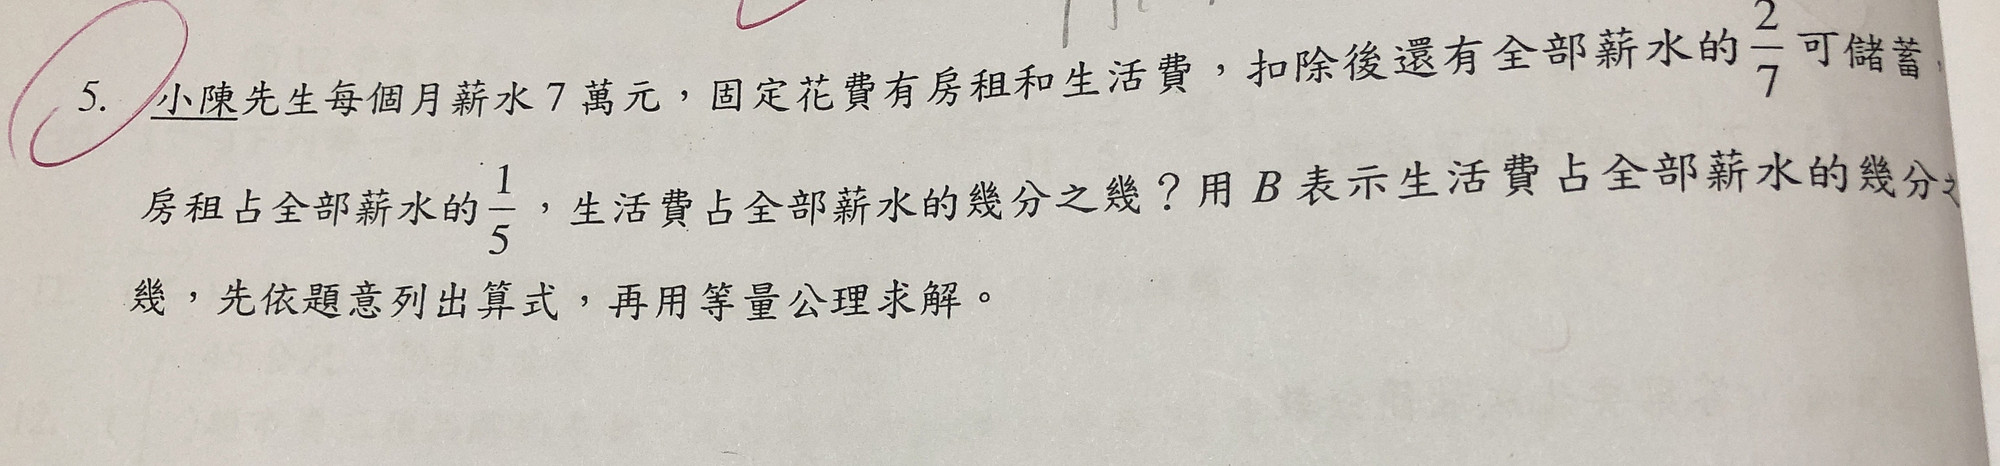 5. 小陳先生每個月薪水 7 萬元，固定花費有房租和生活費，扣除後還有全部薪水的 2/7 可儲蓄，
房租占全部薪水的 1/5，生活費占全部薪水的幾分之幾？用 B 表示生活費占全部薪水的幾分之
幾，先依題意列出算式，再用等量公理求解。